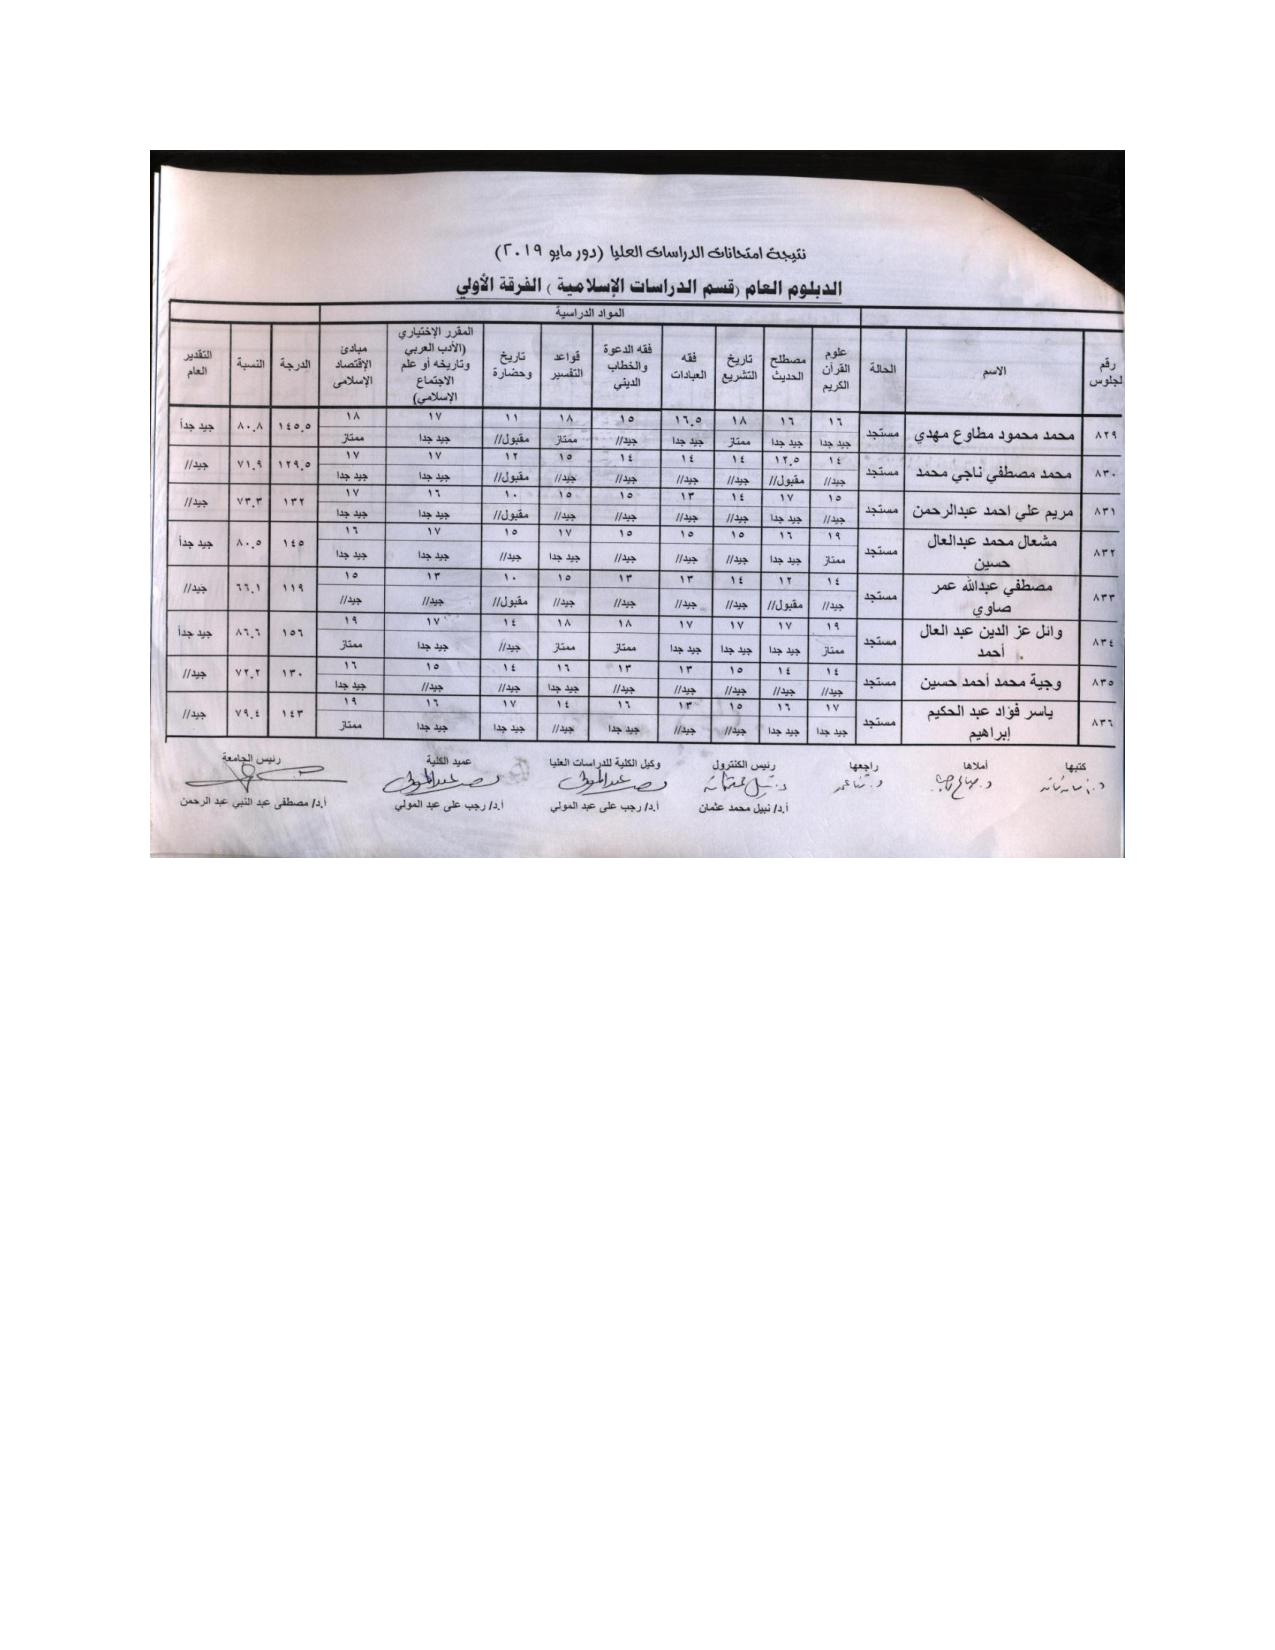 نتيجة امتحانات الدراسات العليا (دور مايو ٢٠١٩)
الدبلوم العام (قسم الدراسات الإسلامية ) الفرقة الأولي
المواد الدراسية
رقم الجلوس الاسم الحالة علوم القرآن الكريم مصطلح الحديث تاريخ التشريع فقه العبادات فقه الدعوة والخطاب الديني قواعد التفسير تاريخ وحضارة المقرر الإختياري (الأدب العربي وتاريخه أو علم الاجتماع الإسلامي) مبادئ الإقتصاد الإسلامى الدرجة النسبة التقدير العام
٨٢٩ محمد محمود مطاوع مهدي مستجد ١٦ ١٦ ١٨ ١٦.٥ ١٥ ١٨ ١١ ١٧ ١٨ ١٤٥.٥ ٨٠.٨ جيد جداً
جيد جدا جيد جدا ممتاز جيد جدا جيد// ممتاز مقبول// جيد جدا ممتاز
٨٣٠ محمد مصطفي ناجي محمد مستجد ١٤ ١٢.٥ ١٤ ١٤ ١٤ ١٥ ١٢ ١٧ ١٧ ١٢٩.٥ ٧١.٩ جيد//
جيد// مقبول// جيد// جيد// جيد// جيد// مقبول// جيد جدا جيد جدا
٨٣١ مريم علي احمد عبدالرحمن مستجد ١٥ ١٧ ١٤ ١٣ ١٥ ١٥ ١٠ ١٦ ١٧ ١٣٢ ٧٣.٣ جيد//
جيد// جيد جدا جيد// جيد// جيد// جيد// مقبول// جيد جدا جيد جدا
٨٣٢ مشعال محمد عبدالعال حسين مستجد ١٩ ١٦ ١٥ ١٥ ١٥ ١٧ ١٥ ١٧ ١٦ ١٤٥ ٨٠.٥ جيد جداً
ممتاز جيد جدا جيد// جيد// جيد// جيد جدا جيد// جيد جدا جيد جدا
٨٣٣ مصطفي عبدالله عمر صاوي مستجد ١٤ ١٢ ١٤ ١٣ ١٣ ١٥ ١٠ ١٣ ١٥ ١١٩ ٦٦.١ جيد//
جيد// مقبول// جيد// جيد// جيد// جيد// مقبول// جيد// جيد//
٨٣٤ وائل عز الدين عبد العال أحمد مستجد ١٩ ١٧ ١٧ ١٧ ١٨ ١٨ ١٤ ١٧ ١٩ ١٥٦ ٨٦.٦ جيد جداً
ممتاز جيد جدا جيد جدا جيد جدا ممتاز ممتاز جيد// جيد جدا ممتاز
٨٣٥ وجية محمد أحمد حسين مستجد ١٤ ١٤ ١٥ ١٣ ١٣ ١٦ ١٤ ١٥ ١٦ ١٣٠ ٧٢.٢ جيد//
جيد// جيد// جيد// جيد// جيد// جيد جدا جيد// جيد// جيد جدا
٨٣٦ ياسر فؤاد عبد الحكيم إبراهيم مستجد ١٧ ١٦ ١٥ ١٣ ١٦ ١٤ ١٧ ١٦ ١٩ ١٤٣ ٧٩.٤ جيد//
جيد جدا جيد جدا جيد// جيد// جيد جدا جيد// جيد جدا جيد جدا ممتاز
كتبها أملاها راجعها رئيس الكنترول وكيل الكلية للدراسات العليا عميد الكلية رئيس الجامعة
أ.د/ نبيل محمد عثمان أ.د/ رجب على عبد المولي أ.د/ رجب على عبد المولي أ.د/ مصطفى عبد النبي عبد الرحمن